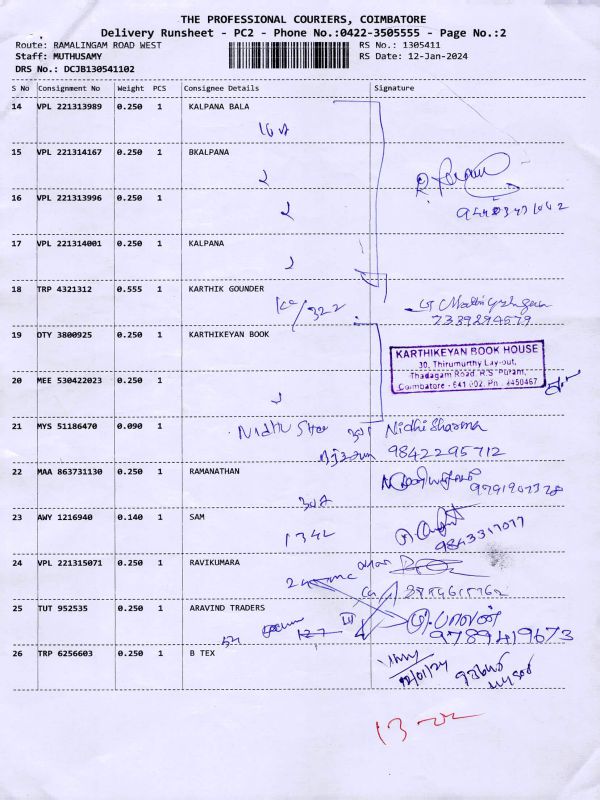 THE PROFESSIONAL COURIERS, COIMBATORE
Delivery Runsheet - PC2 - Phone No.:0422-3505555 - Page No.:2
Route: RAMALINGAM ROAD WEST RS No.: 1305411
Staff: MUTHUSAMY RS Date: 12-Jan-2024
DRS No.: DCJB130541102
S No Consignment No Weight PCS Consignee Details Signature
14 VPL 221313989 0.250 1 KALPANA BALA
15 VPL 221314167 0.250 1 BKALPANA
16 VPL 221313996 0.250 1
17 VPL 221314001 0.250 1 KALPANA
18 TRP 4321312 0.555 1 KARTHIK GOUNDER
322
7339294579
19 DTY 3800925 0.250 1 KARTHIKEYAN BOOK
KARTHIKEYAN BOOK HOUSE
30, Thirumurthy Lay-out,
Thadagam Road, R.S. Puram,
Coimbatore - 641 002. Pn : 2450467
20 MEE 530422023 0.250 1
21 MYS 51186470 0.090 1 Nidhi Sharma
9842295712
22 MAA 863731130 0.250 1 RAMANATHAN
23 AWY 1216940 0.140 1 SAM
1342 9843317077
24 VPL 221315071 0.250 1 RAVIKUMARA
25 TUT 952535 0.250 1 ARAVIND TRADERS
127 9789419673
26 TRP 6256603 0.250 1 B TEX
12/01/24
13